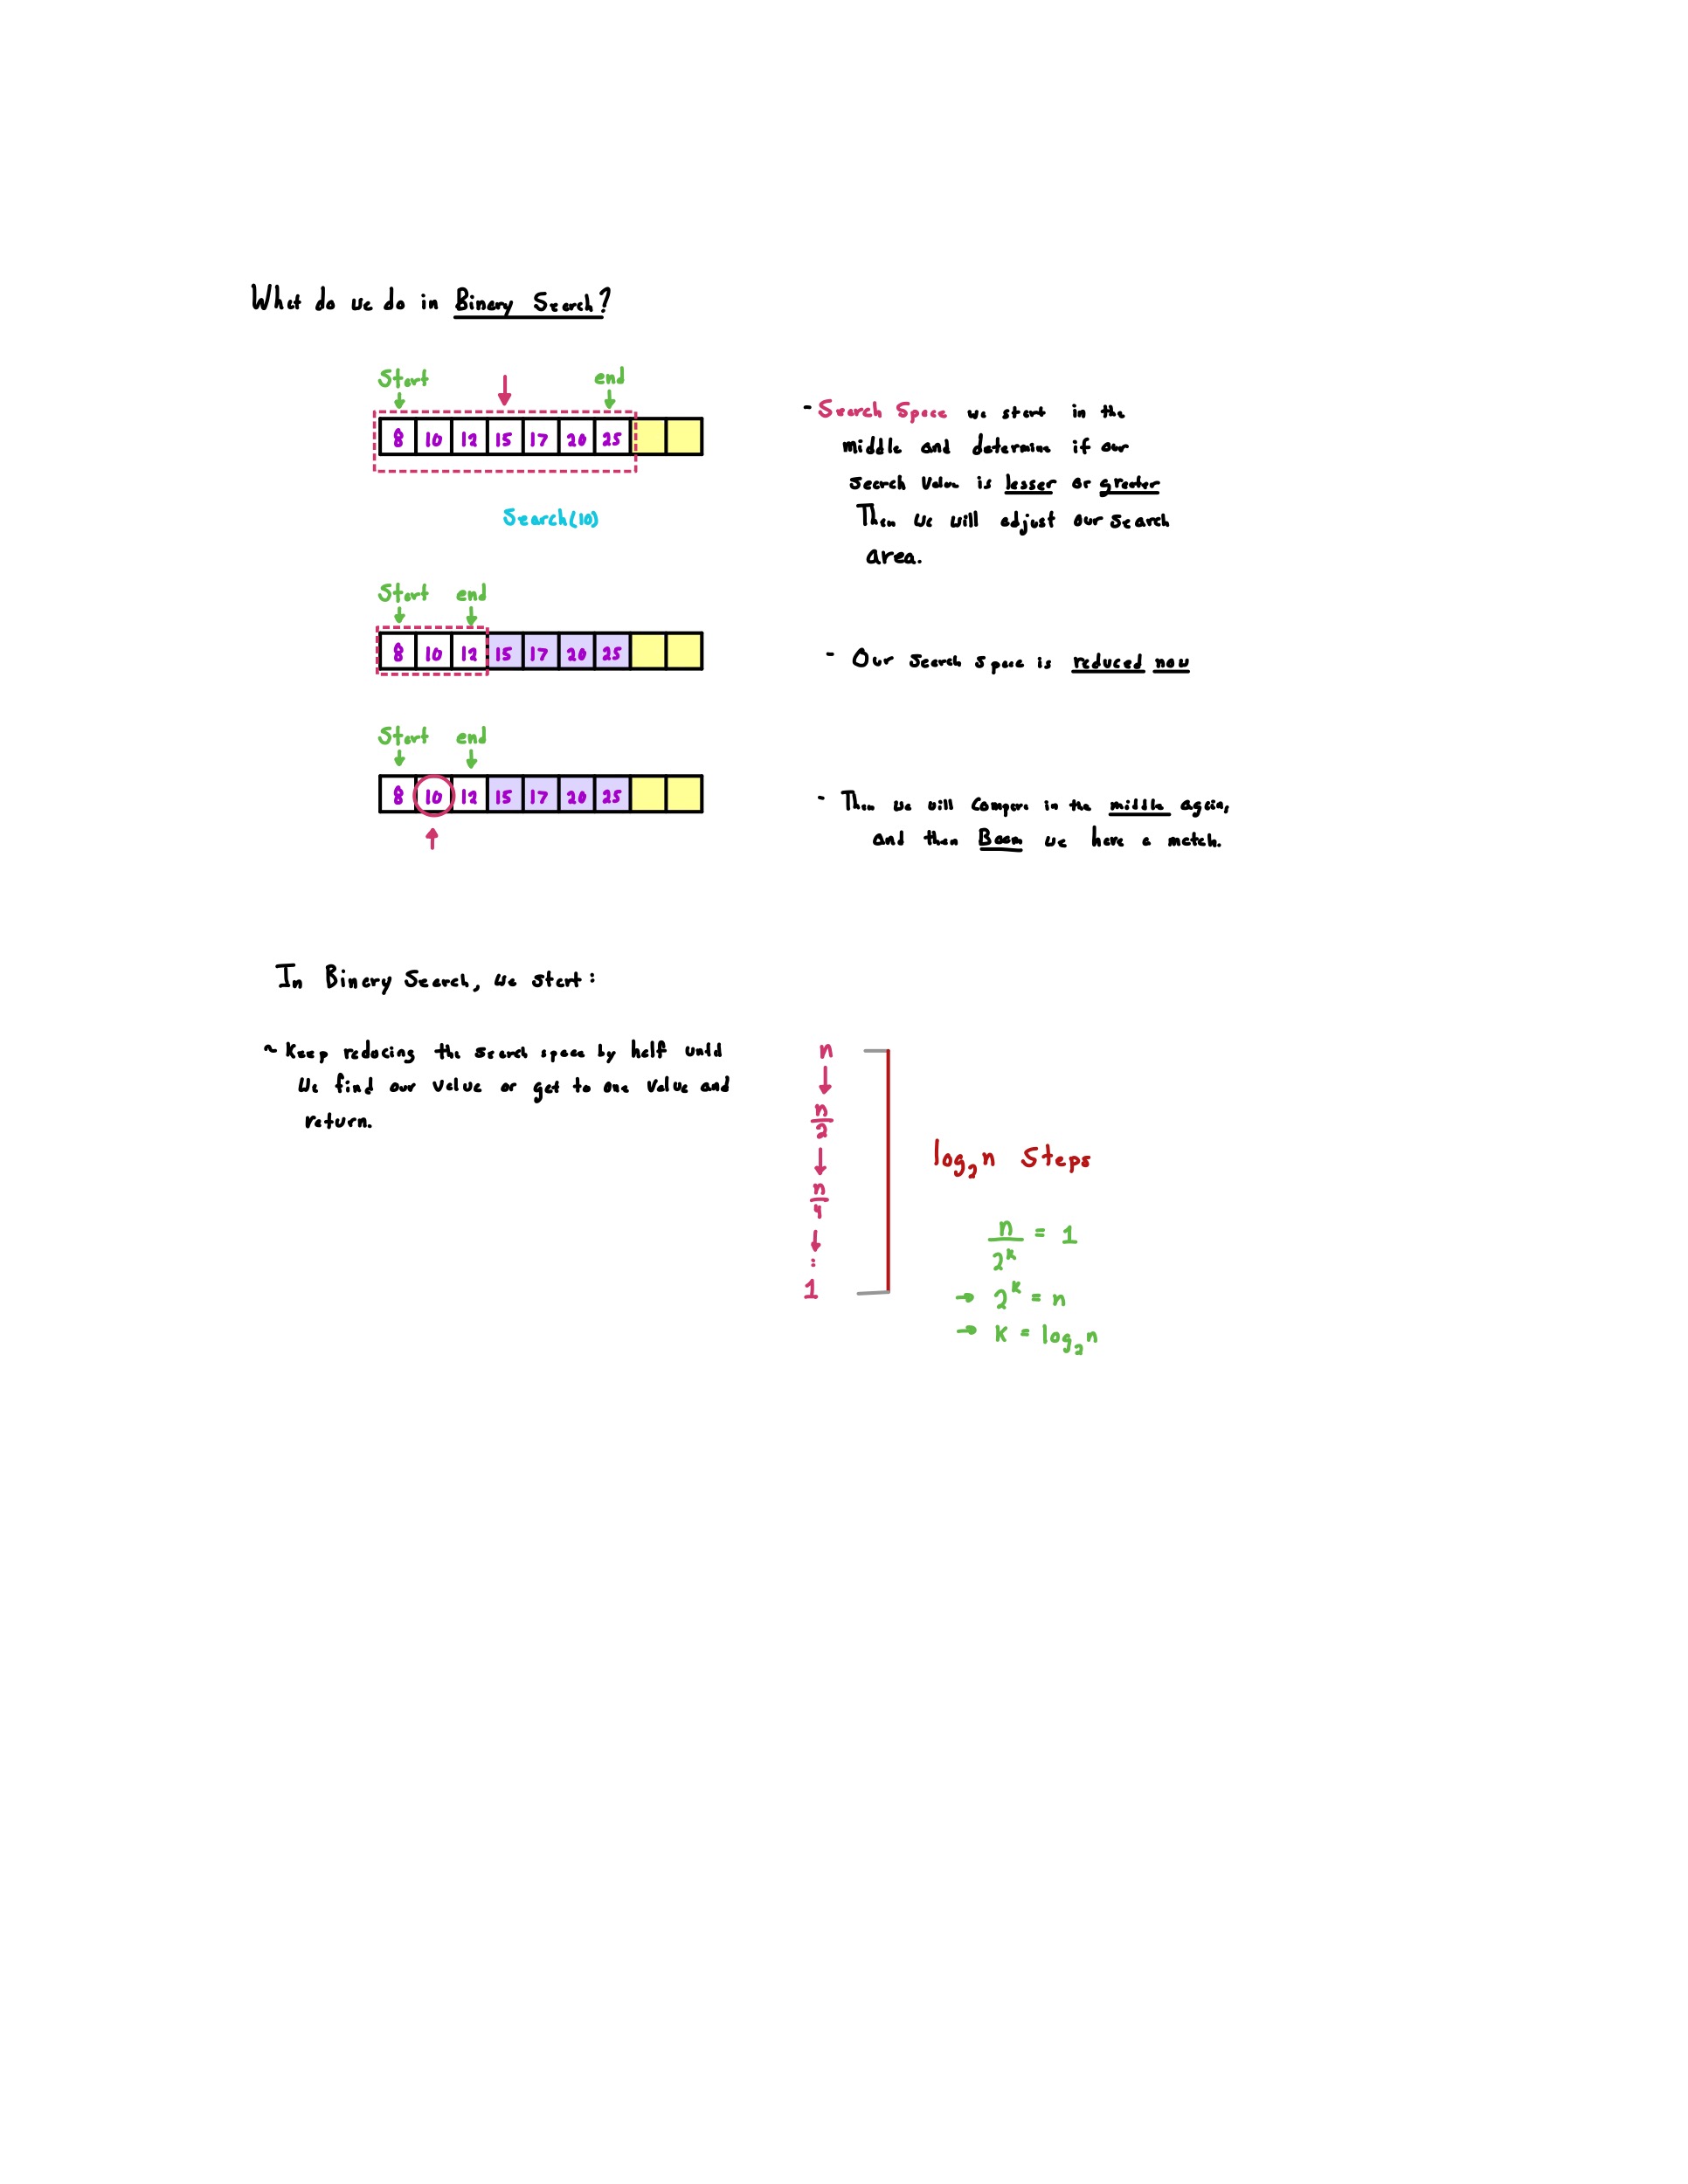 What do we do in Binary Search?
Start end
8 10 12 15 17 20 25
- Search Space we start in the
middle and determine if our
search value is lesser or greater
Then we will adjust our search
area.
Search(10)
Start end
8 10 12 15 17 20 25
- Our search space is reduced now
Start end
8 10 12 15 17 20 25
- Then we will compare in the middle again,
and then Boom we have a match.
In Binary Search, we start:
~ Keep reducing the search space by half until
we find our value or get to one value and
return.
n
n/2
n/4
:
1
log₂n Steps
n/2^k = 1
→ 2^k = n
→ k = log₂n